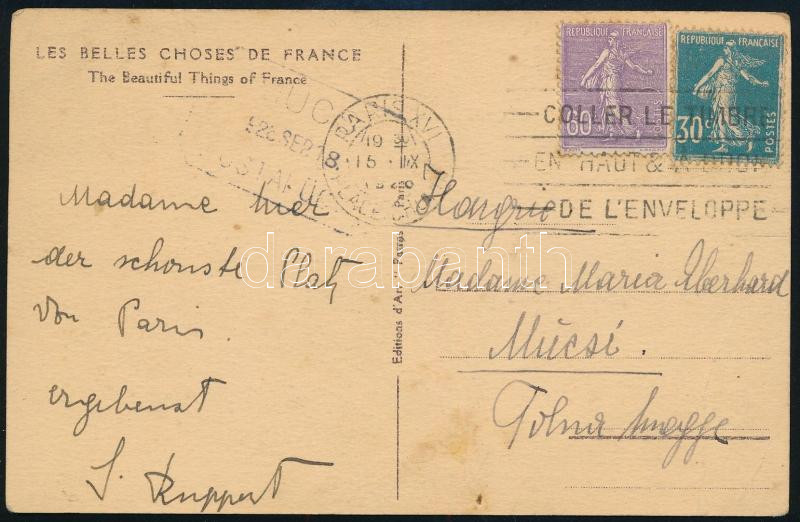 LES BELLES CHOSES DE FRANCE
The Beautiful Things of France
REPUBLIQUE FRANÇAISE
60c
REPUBLIQUE FRANÇAISE
30c
POSTES
PARIS XVI
19
15 IX
COLLER LE TIMBRE
EN HAUT & A DROITE
DE L'ENVELOPPE
MUCSI
928 SEP
POSTAFÜG
Madame hier
der schönste Platz
von Paris.
ergebenst
S. Ruppert
Editions d'Art
Paris
Hongrie
Madame Maria Eberhard
Mucsi.
Tolna megye
darabanth